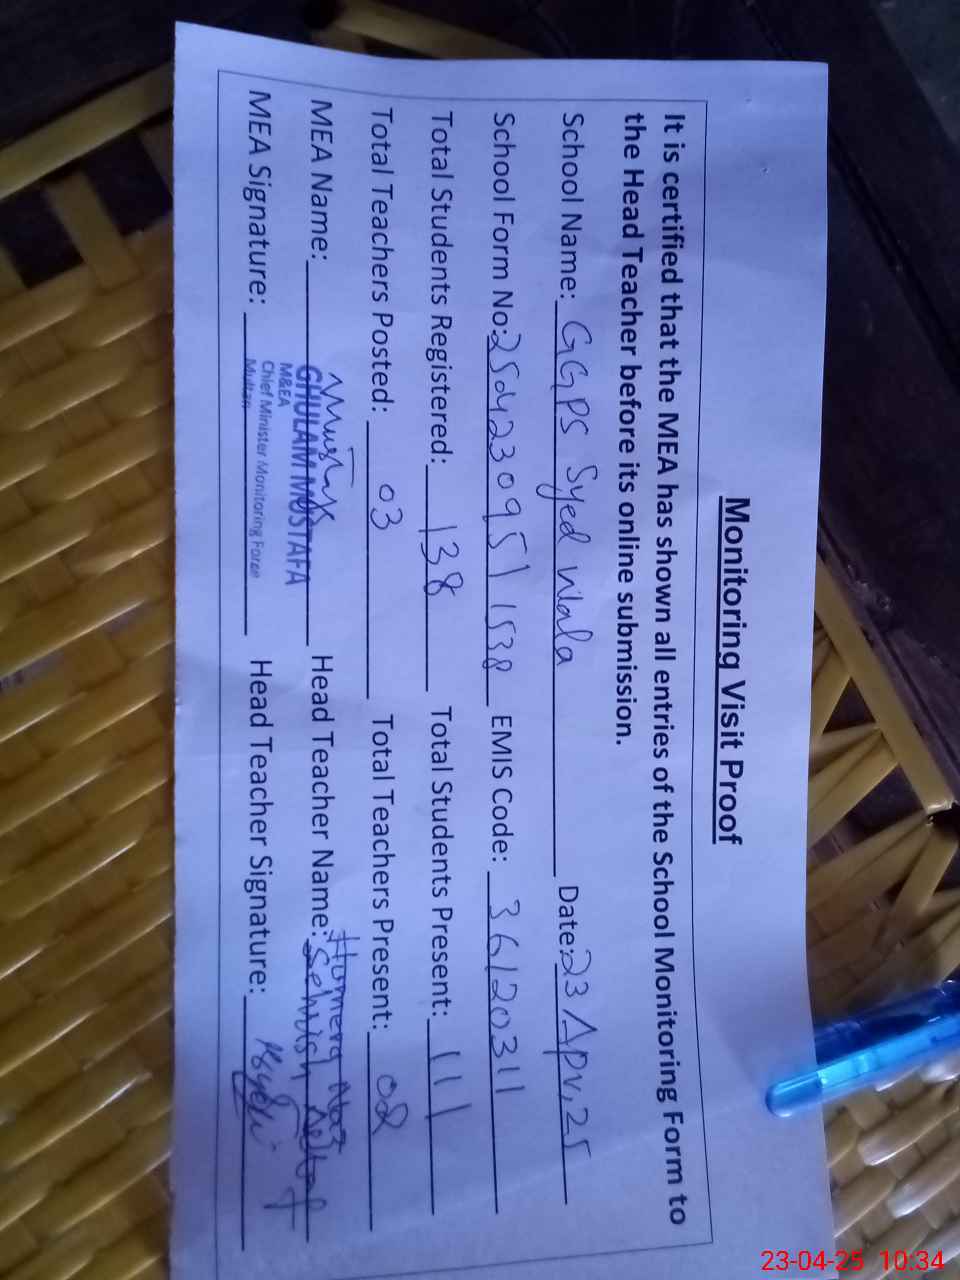 Monitoring Visit Proof
It is certified that the MEA has shown all entries of the School Monitoring Form to
the Head Teacher before its online submission.
School Name: GGPS Syed Wala Date: 23 Apr, 25
School Form No: EMIS Code: 36120311
Total Students Registered: 138 Total Students Present: 111
Total Teachers Posted: 03 Total Teachers Present: 02
MEA Name: GHULAM MUSTAFA Head Teacher Name: Humera Naz
M&EA
Chief Minister Monitoring Force
Multan
MEA Signature: Head Teacher Signature:
23-04-25 10:34